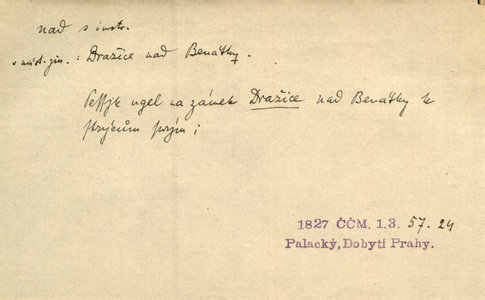 nad s instr.
v míst. jm. : Dražice nad Benátky.
ugel na zámek Dražice nad Benátky k
strýcům svým ;
1827 ČČM. 1.3. 57. 24
Palacký, Dobytí Prahy.